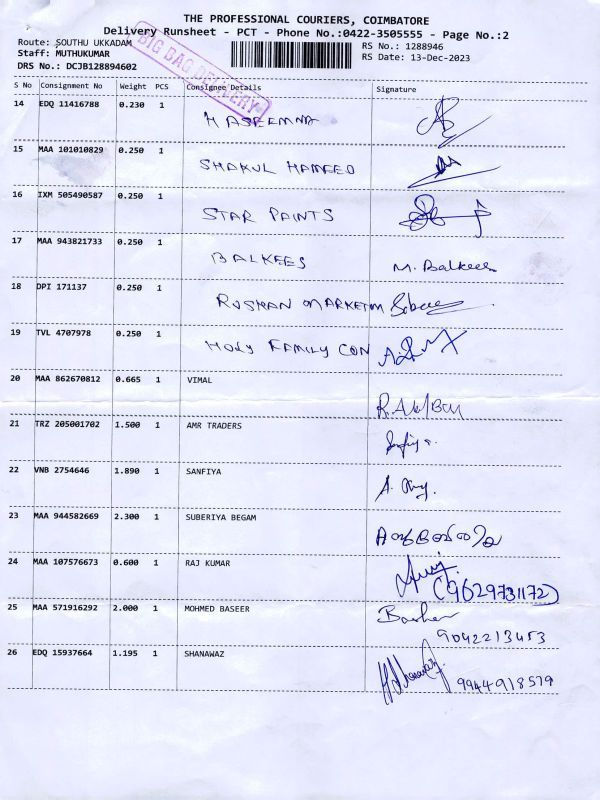 THE PROFESSIONAL COURIERS, COIMBATORE
Delivery Runsheet - PCT - Phone No.:0422-3505555 - Page No.:2
Route: SOUTHU UKKADAM
RS No.: 1288946
Staff: MUTHUKUMAR
RS Date: 13-Dec-2023
DRS No.: DCJB128894602
BIG BAG DELIVERY
S No Consignment No Weight PCS Consignee Details Signature
14 EDQ 11416788 0.230 1 HASEEMNA
15 MAA 101010829 0.250 1 SHAKUL HAMEED
16 IXM 505490587 0.250 1 STAR PAINTS
17 MAA 943821733 0.250 1 BALKEES M. Balkees
18 DPI 171137 0.250 1
19 TVL 4707978 0.250 1 HOLY FAMILY CON
20 MAA 862670812 0.665 1 VIMAL
21 TRZ 205001702 1.500 1 AMR TRADERS
22 VNB 2754646 1.890 1 SANFIYA
23 MAA 944582669 2.300 1 SUBERIYA BEGAM
24 MAA 107576673 0.600 1 RAJ KUMAR (9629731172)
25 MAA 571916292 2.000 1 MOHMED BASEER
9042213453
26 EDQ 15937664 1.195 1 SHANAWAZ 9944918579